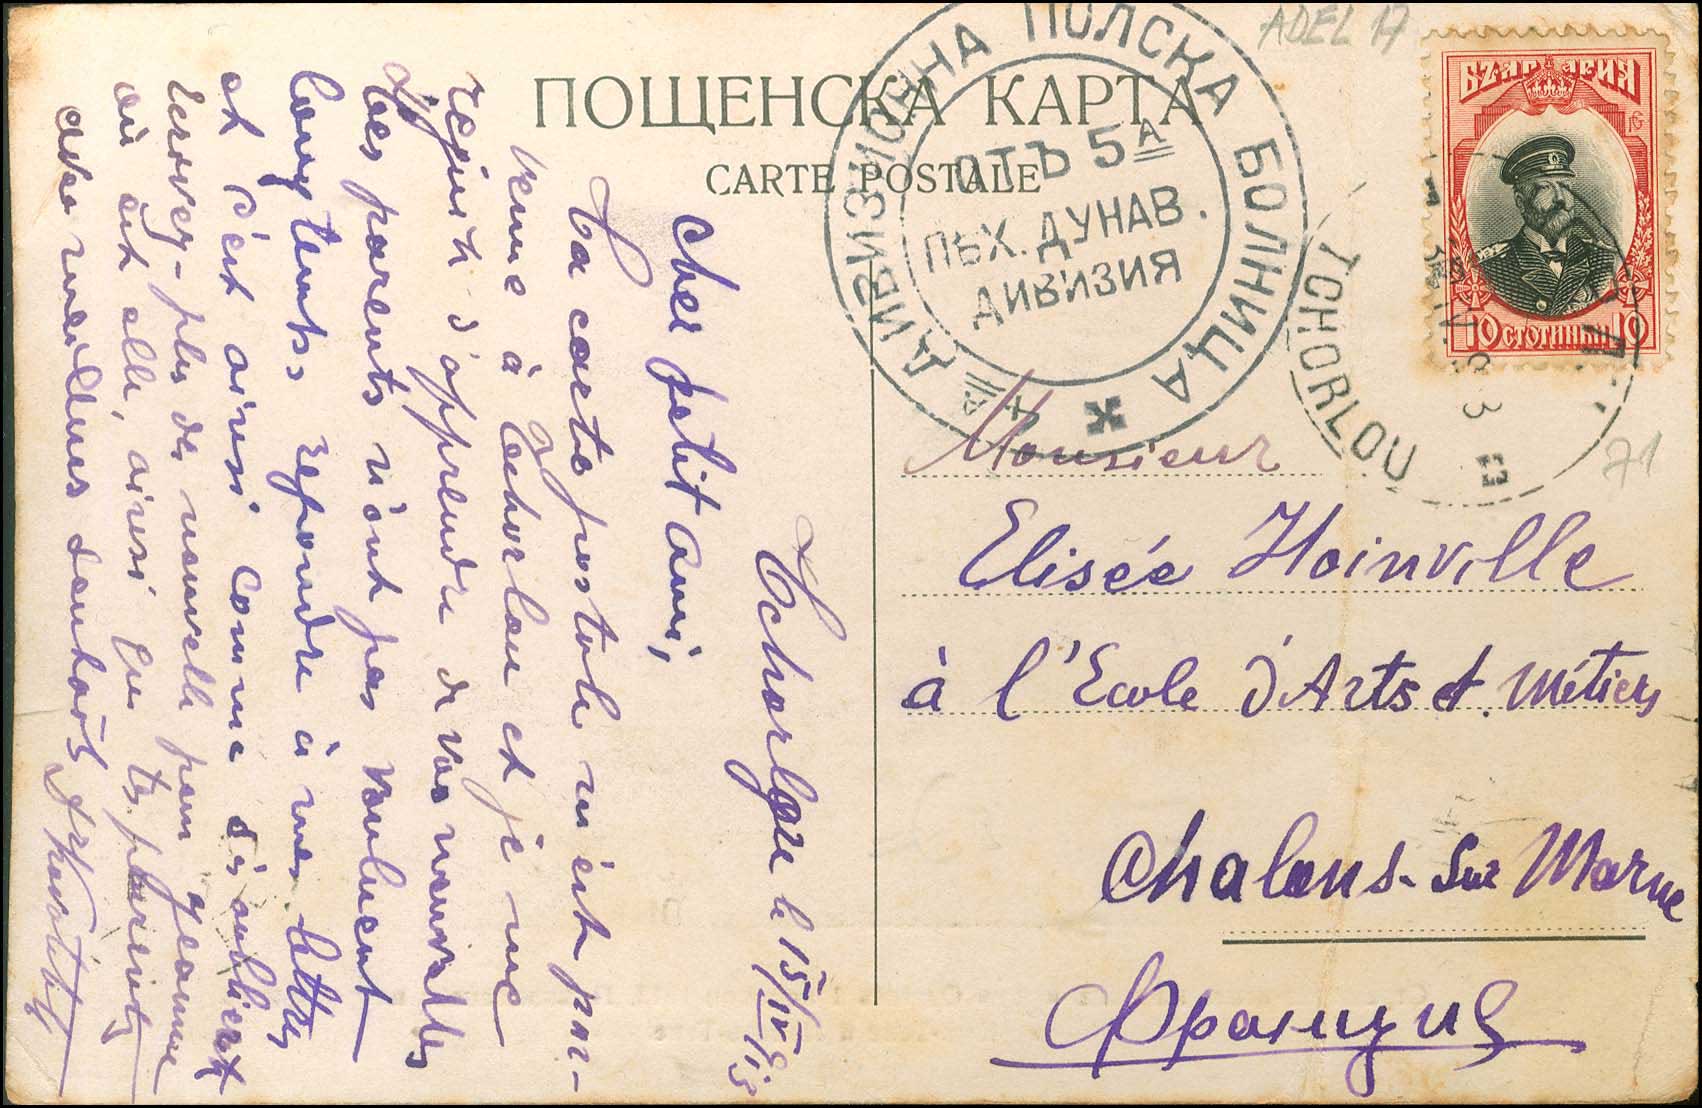 ПОЩЕНСКА КАРТА
CARTE POSTALE
ДИВИЗИОННА ПОЛСКА БОЛНИЦА
ОТЪ 5А
ПѢХ. ДУНАВ.
ДИВИЗИЯ
ADEL 17
БЪЛГАРИЯ
10 СТОТИНКИ 10
TCHORLOU
71
Tchorlou le 15/IV 913
Cher petit ami,
Ta carte postale m'est par-
venue à Tchorlou et je me
réjouis d'apprendre de vos nouvelles
Mes parents n'ont pas
longtemps répondre à mes lettres
et c'est ainsi comme
plus de nouvelle pour Jeanne
où est elle, ainsi que tes parents
des meilleurs souhaits
Monsieur
Elisée Hoinville
à l'Ecole d'Arts et Métiers
Chalons-sur Marne
Франция